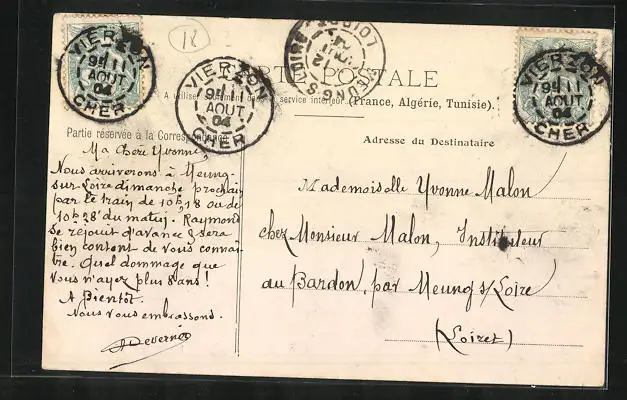 VIERZON
9E 11
AOUT
04
CHER
VIERZON
9E 11
AOUT
04
CHER
MEUNG S LOIRE
LOIRET
12
04
VIERZON
9E 11
AOUT
04
CHER
18
CARTE POSTALE
A utiliser seulement dans le service intérieur (France, Algérie, Tunisie).
Partie réservée à la Correspondance
Adresse du Destinataire
Ma Chère Yvonne,
Nous arriverons à Meung-
sur-Loire dimanche prochain
par le train de 10h,18 ou de
10h28' du matin. Raymond
se réjouit d'avance & sera
bien content de vous connaî-
tre. Quel dommage que
vous n'ayez plus 8 ans !
A Bientôt.
Nous vous embrassons.
Mademoiselle Yvonne Malon
chez Monsieur Malon, Instituteur
au Bardon, par Meung s/Loire
(Loiret)